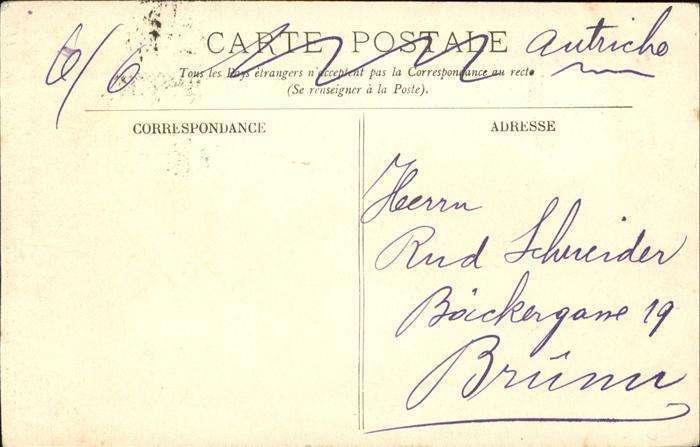 6/6
CARTE POSTALE Autriche
Tous les Pays étrangers n'acceptent pas la Correspondance au recto
(Se renseigner à la Poste).
CORRESPONDANCE
ADRESSE
Herrn
Rud Schneider
Bäckergasse 19
Brünn